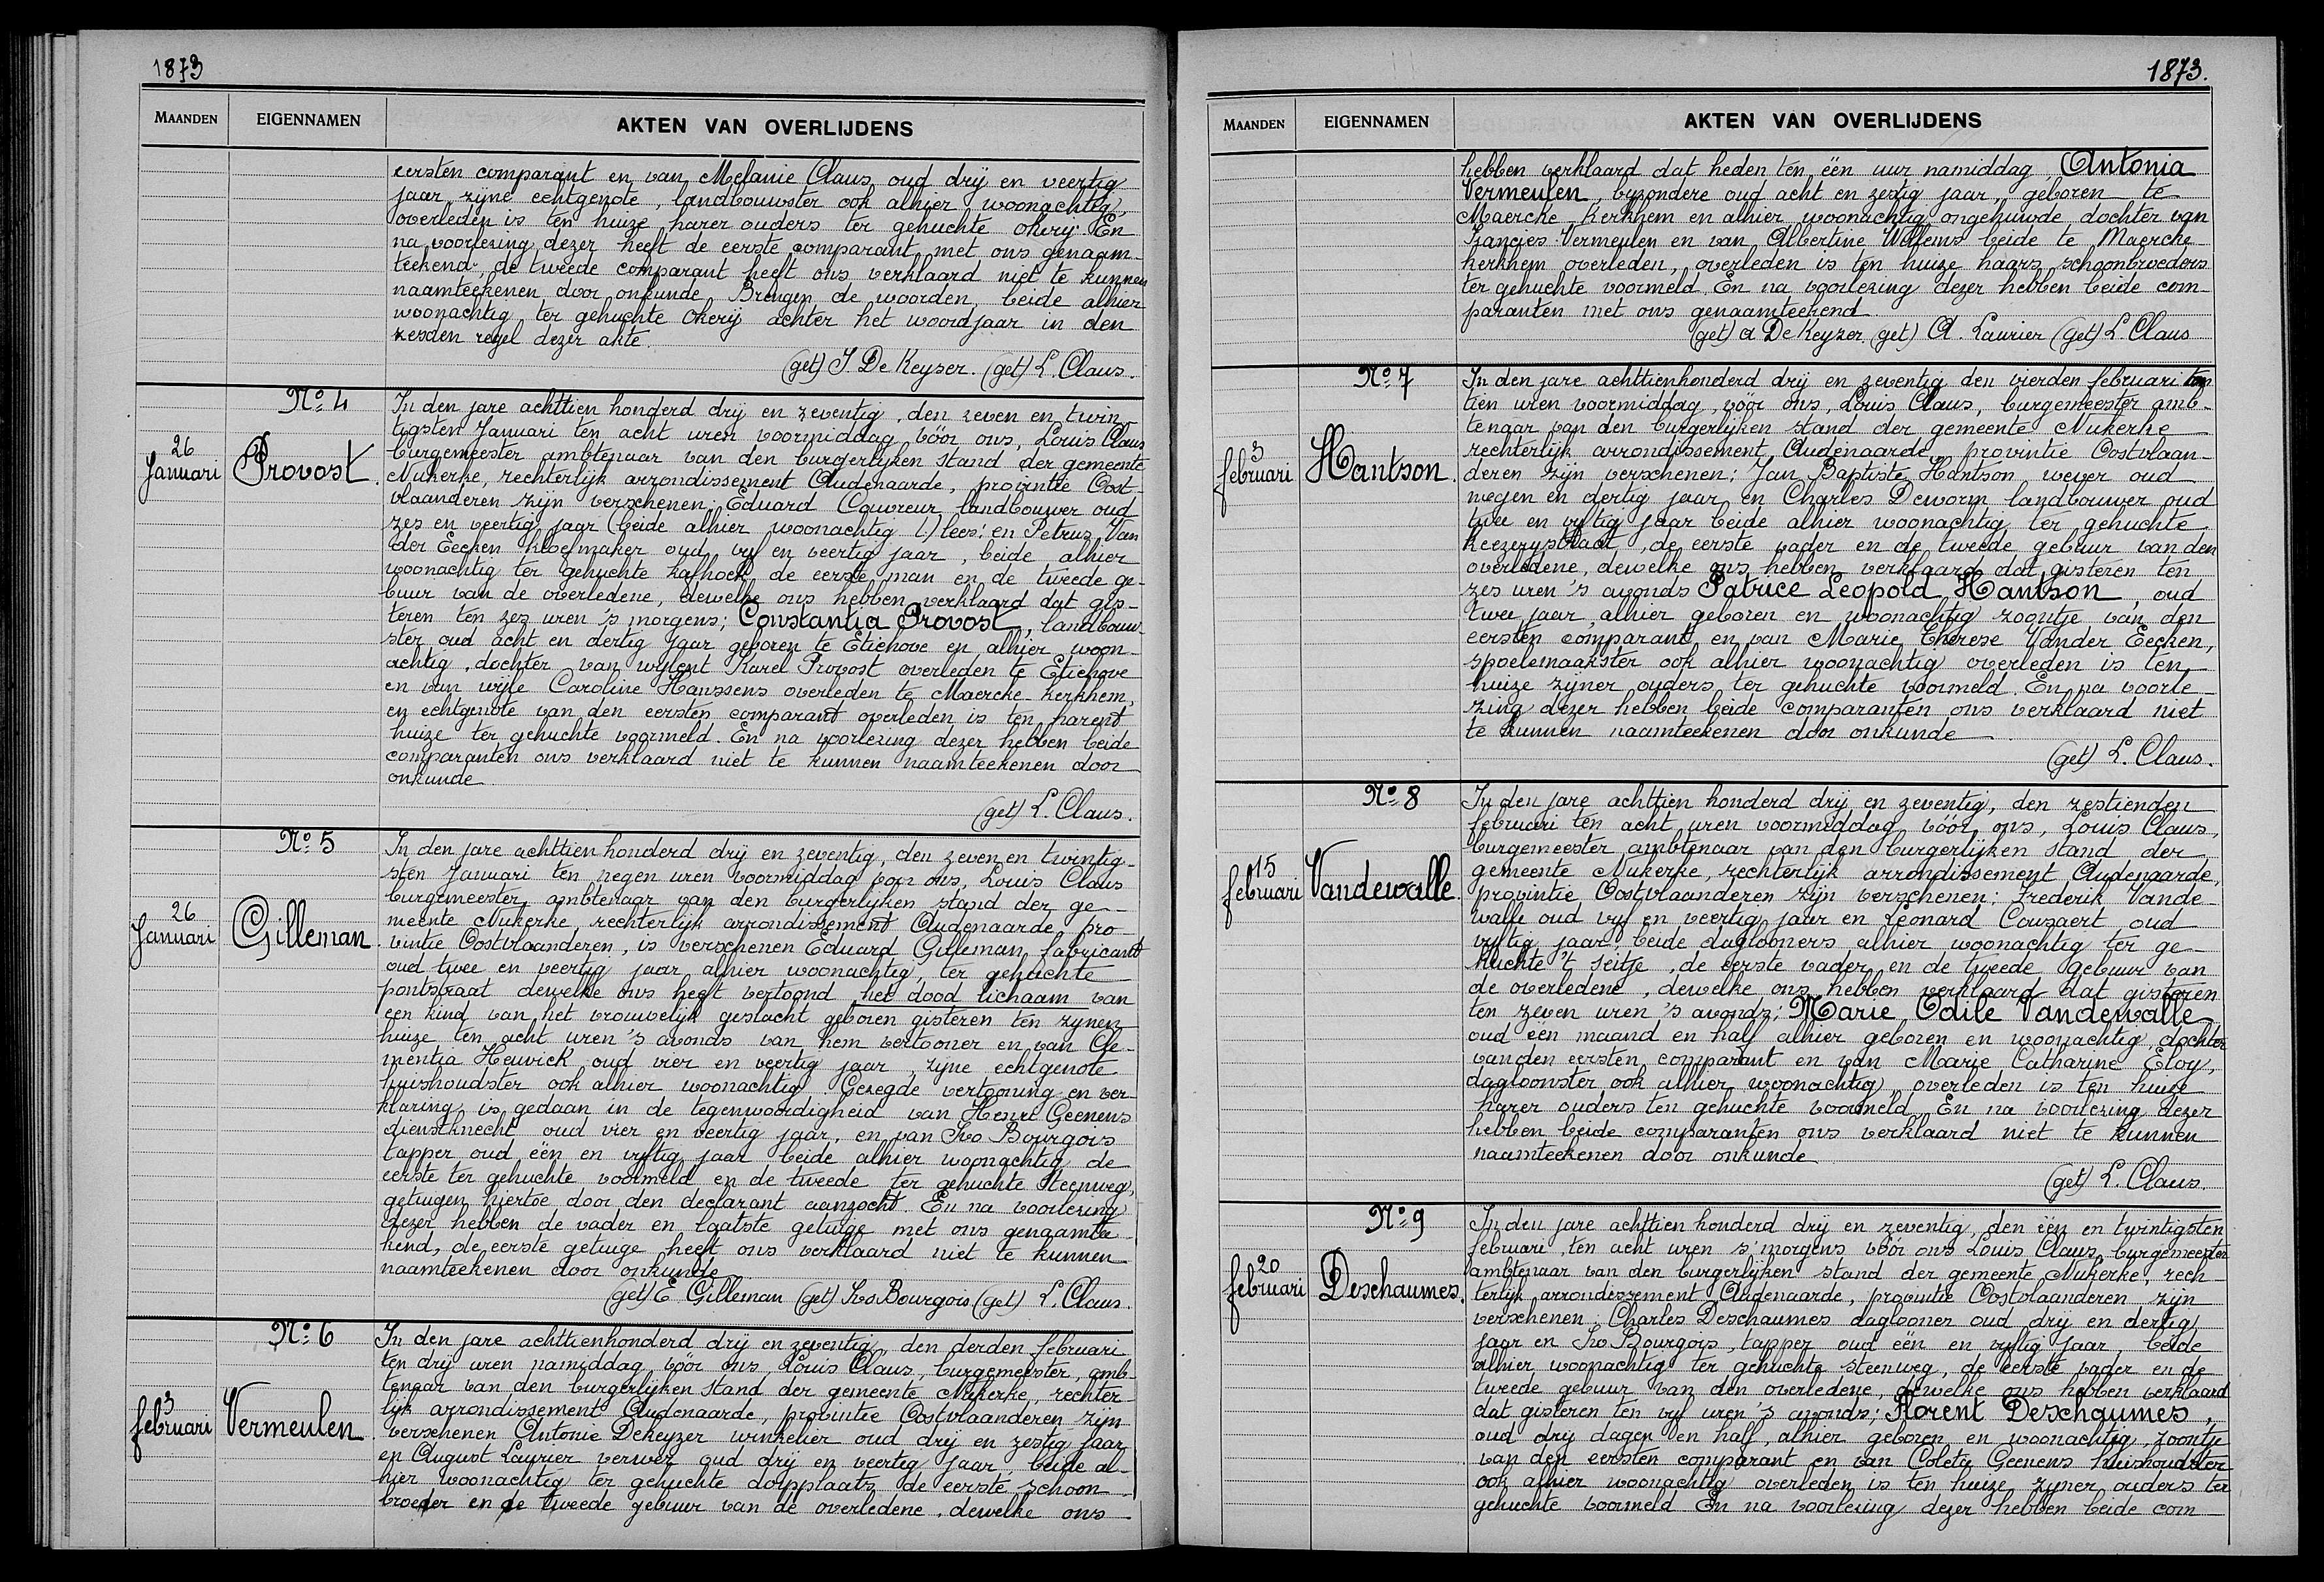 1873
MAANDEN
EIGENNAMEN
AKTEN VAN OVERLIJDENS
eersten comparant en van Melanie Claus oud drij en veertig
jaar zijne echtgenote, landbouwster ook alhier woonachtig,
overleden is ten huize harer ouders ter gehuchte okerij. En
na voorlezing dezer heeft de eerste comparant met ons genaam-
teekend, de tweede comparant heeft ons verklaard niet te kunnen
naamteekenen door onkunde Brengen de woorden, beide alhier
woonachtig ter gehuchte Okerij achter het woord jaar in den
zesden regel dezer akte.
(get) J De Keyser. (get) L. Claus.
No 4
26
Januari
Provost
In den jare achttien honderd drij en zeventig, den zeven en twin
tigsten Januari ten acht uren voormiddag vóór ons, Louis Claus
burgemeester ambtenaar van den burgerlijken stand der gemeente
Nukerke, rechterlijk arrondissement Audenaarde, provintie Oost-
vlaanderen zijn verschenen: Eduard Couvreur landbouwer oud
zes en veertig jaar (beide alhier woonachtig L) lees: en Petrus Van
der Eecken kloefmaker oud vijf en veertig jaar, beide alhier
woonachtig ter gehuchte kafhoek de eerste man en de tweede ge-
buur van de overledene, dewelke ons hebben verklaard dat gis-
teren ten zes uren 's morgens; Constantia Provost, landbouw-
ster oud acht en dertig jaar geboren te Etichove en alhier woon-
achtig, dochter van wylent Karel Provost overleden te Etichove
en van wijle Caroline Hanssens overleden te Maercke-kerkhem,
en echtgenote van den eersten comparant overleden is ten harent
huize ter gehuchte voormeld. En na voorlezing dezer hebben beide
comparanten ons verklaard niet te kunnen naamteekenen door
onkunde
(get) L. Claus.
No 5
26
Januari
Gilleman
In den jare achttien honderd drij en zeventig, den zeven en twintig-
sten Januari ten negen uren voormiddag voor ons, Louis Claus
burgemeester ambtenaar van den burgerlijken stand der ge-
meente Nukerke, rechterlijk arrondissement Audenaarde pro-
vintie Oostvlaanderen, is verschenen Eduard Gilleman, fabricant
oud twee en veertig jaar alhier woonachtig, ter gehuchte
pontstraat dewelke ons heeft vertoond het dood lichaam van
een kind van het vrouwelijk geslacht geboren gisteren ten zijnen
huize ten acht uren 's avonds van hem vertooner en van Cle-
mentia Heuvick oud vier en veertig jaar, zijne echtgenote
huishoudster ook alhier woonachtig. Gezegde vertooning en ver-
klaring is gedaan in de tegenwoordigheid van Henri Geenens
dienstknecht oud vier en veertig jaar, en van Ivo Bourgois
tapper oud één en vijftig jaar beide alhier woonachtig de
eerste ter gehuchte voormeld en de tweede ter gehuchte Steenweg,
getuigen hiertoe door den declarant aanzocht. En na voorlezing
dezer hebben de vader en laatste getuige met ons genaamtee
kend, de eerste getuige heeft ons verklaard niet te kunnen
naamteekenen door onkunde
(get) E Gilleman (get) Ivo Bourgois (get) L. Claus.
No 6
3
februari
Vermeulen
In den jare achttienhonderd drij en zeventig, den derden februari
ten drij uren namiddag, vóór ons, Louis Claus, burgemeester, amb-
tenaar van den burgerlijken stand der gemeente Nukerke, rechter-
lijk arrondissement Audenaarde, provintie Oostvlaanderen zijn
verschenen Antonie Dekeyzer winkelier oud drij en zestig jaar
en August Laurier verwer oud drij en veertig jaar, beide al-
hier woonachtig ter gehuchte dorpplaats de eerste schoon-
broeder en de tweede gebuur van de overledene, dewelke ons
1873.
MAANDEN
EIGENNAMEN
AKTEN VAN OVERLIJDENS
hebben verklaard dat heden ten één uur namiddag, Antonia
Vermeulen, byzondere oud acht en zestig jaar, geboren te
Maercke Kerkhem en alhier woonachtig ongehuwde dochter van
Francies Vermeulen en van Albertine Willems beide te Maercke-
kerkhem overleden, overleden is ten huize haars schoonbroeders
ter gehuchte voormeld. En na voorlezing dezer hebben beide com-
paranten met ons genaamteekend
(get) a De Keyzer (get) A. Laurier (get) L. Claus
No 7
3
februari
Hantson.
In den jare achttienhonderd drij en zeventig den vierden februari ten
tien uren voormiddag, vóór ons, Louis Claus, burgemeester amb-
tenaar van den burgerlijken stand der gemeente Nukerke
rechterlijk arrondissement Audenaarde, provintie Oostvlaan-
deren zijn verschenen: Jan Baptiste Hantson wever oud
negen en dertig jaar en Charles Deworm landbouwer oud
twee en vijftig jaar beide alhier woonachtig ter gehuchte
keezerystraat, de eerste vader en de tweede gebuur van den
overledene, dewelke ons hebben verklaard dat gisteren ten
zes uren 's avonds Patrice Leopold Hantson, oud
twee jaar, alhier geboren en woonachtig zoontje van den
eersten comparant en van Marie Thérese Vander Eecken,
spoelemaakster ook alhier woonachtig overleden is ten
huize zijner ouders ter gehuchte voormeld. En na voorle
zing dezer hebben beide comparanten ons verklaard niet
te kunnen naamteekenen door onkunde
(get) L. Claus.
No 8
15
februari
Vandewalle.
In den jare achttien honderd drij en zeventig, den zestienden
februari ten acht uren voormiddag vóór ons, Louis Claus,
burgemeester ambtenaar van den burgerlijken stand der
gemeente Nukerke, rechterlijk arrondissement Audenaarde,
provintie Oostvlaanderen zijn verschenen: Frederik Vande-
walle oud vijf en veertig jaar en Léonard Couzaert oud
vijftig jaar beide daglooners alhier woonachtig ter ge-
huchte 't seitje, de eerste vader en de tweede gebuur van
de overledene, dewelke ons hebben verklaard dat gisteren
ten zeven uren 's avonds; Marie Odile Vandewalle
oud één maand en half alhier geboren en woonachtig, dochter
van den eersten comparant en van Marie Catharine Eloy,
dagloonster ook alhier woonachtig overleden is ten huize
harer ouders ten gehuchte voormeld. En na voorlezing dezer
hebben beide comparanten ons verklaard niet te kunnen
naamteekenen door onkunde
(get) L. Claus.
No 9
20
februari
Deschaumes.
In den jare achttien honderd drij en zeventig, den één en twintigsten
februari, ten acht uren s'morgens vóór ons Louis Claus, burgemeester
ambtenaar van den burgerlijken stand der gemeente Nukerke, rech-
terlijk arrondissement Audenaarde, provintie Oostvlaanderen zijn
verschenen: Charles Deschaumes daglooner oud drij en dertig
jaar en Ivo Bourgois, tapper oud één en vijftig jaar, beide
alhier woonachtig ter gehuchte steenweg, de eerste vader en de
tweede gebuur van den overledene, dewelke ons hebben verklaard
dat gisteren ten vijf uren 's avonds; Florent Deschaumes,
oud drij dagen en half, alhier geboren en woonachtig, zoontje
van den eersten comparant en van Coleta Geenens huishoudster
ook alhier woonachtig overleden is ten huize zijner ouders ter
gehuchte voormeld En na voorlezing dezer hebben beide com